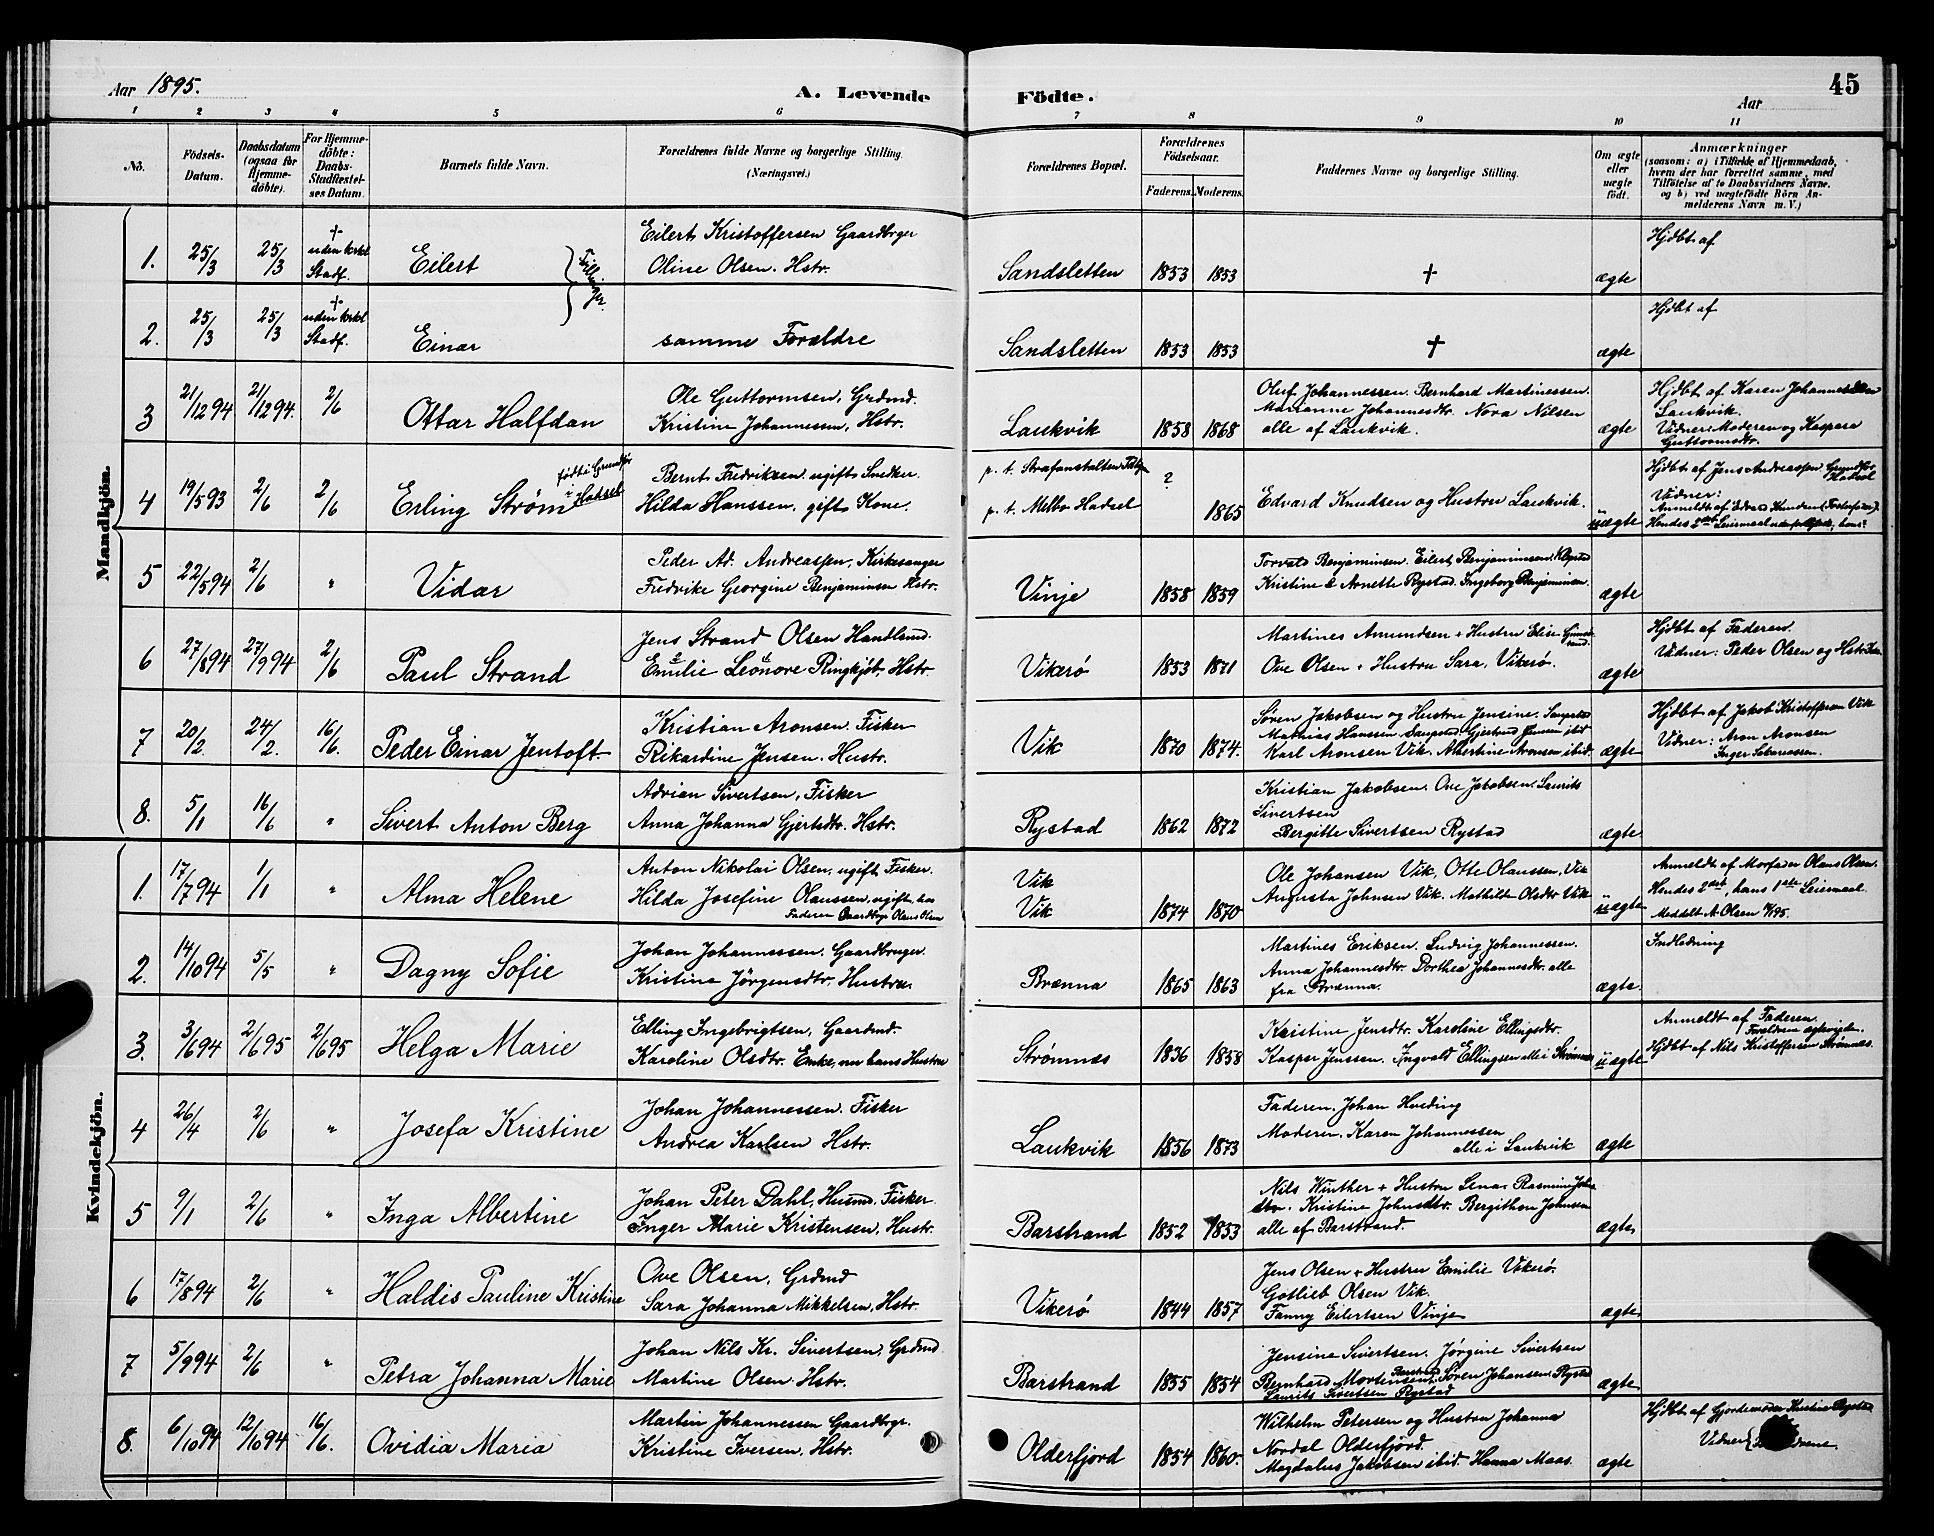 Aar 1895.
A. Levende Födte.
Aar
45
1 2 3 4 5 6 7 8 9 10 11
No.
Födsels-Datum.
Daabsdatum (ogsaa for Hjemme-döbte).
For Hjemme-döbte: Daabs-Stadfæstel-ses Datum.
Barnets fulde Navn.
Forældrenes fulde Navne og borgerlige Stilling. (Næringsvei.)
Forældrenes Bopæl.
Forældrenes Födselsaar.
Faderens. Moderens.
Faddernes Navne og borgerlige Stilling.
Om ægte eller uægte födt.
Anmærkninger
(saasom: a) i Tilfælde af Hjemmedaab,
hvem der har forrettet samme, med
Tilföielse af to Daabsvidners Navne.
og b) ved uægtefödte Börn An-
melderens Navn m. V.)
Mandkjön.
1. 25/3 25/3 † uden kirkl Stadf. Eilert } Tvillinger.
Eilert Kristoffersen Gaardbrger
Oline Olsen. Hstr.
Sandsletten 1853 1853 † ægte
Hjdbt af
2. 25/3 25/3 † uden kirkl Stadf. Einar
samme Forældre
Sandsletten 1853 1853 † ægte
Hjdbt af
3 21/12 94 21/12 94. 2/6 Ottar Halfdan
Ole Guttormsen, Grdmd.
Kristine Johannessen, Hstr.
Laukvik 1858 1868
Oluf Johannessen. Bernhard Martinessen.
Marianne Johannesdtr. Nora Nilsen
alle af Laukvik.
ægte
Hjdbt af Karen
Laukvik.
Vidner: Moderen og Kaspara
Guttormsdtr.
4 19/5 93 2/6 2/6 Erling Strøm
født i
Hadsel
Bernt Fredriksen ugift Snedker.
Hilda Hanssen, gift Kone.
p. t. Strafanstalten
p. t. Melbo Hadsel
? 1865
Edvard Knudsen og Hustru Laukvik.
uægte
Hjdbt af Jens Andreassen
Hadsel
Vidner:
Anmeldt af Edvard Knudsen (Fosterfar).
5 22/5 94 2/6 " Vidar
Peder Ad. Andreassen, Kirkesanger
Fredrike Georgine Benjaminsen Hstr.
Vinje 1858 1859
Torvald Benjaminsen. Eilert Benjaminsen. Rystad
Kristine & Arnette Rystad. Ingeborg Benjaminsen.
ægte
6 27/8 94 27/9 94 2/6 Paul Strand
Jens Strand Olsen Handlsmd.
Emilie Leonore Ringkjøb, Hstr.
Vikerø 1853 1871
Martines Amundsen + Hustru Elise
Ove Olsen + Hustru Sara, Vikerø.
ægte
Hjdbt af Faderen.
Vidner: Peder Olsen og Hstr
7 20/2. 24/2. 16/6. Peder Einar Jentoft.
Kristian Aronsen. Fisker
Rikardine Jensen. Hustr.
Vik 1870 1874.
Søren Jakobsen og Hustru Jensine. Saupstad
Mathias Hanssen. Saupstad. Gjertrud Jensen ibid
Karl Aronsen Vik. Albertine Aronsen ibid.
ægte
Hjdbt af Jakob Kristoffersen Vik
Vidner: Aron Aronsen
Inger
8. 5/1 16/6 " Sivert Anton Berg
Adrian Sivertsen, Fisker
Anna Johanna Gjertsdtr. Hstr.
Rystad 1862 1872
Kristian Jakobsen. Ove Jakobsen. Laurits
Sivertsen
Bergitte Sivertsen Rystad
ægte
Kvindekjön.
1. 17/7 94 1/1 " Alma Helene
Anton Nikolai Olsen, ugift Fisker.
Hilda Josefine Olaussen, ugift, hos
Faderen Gaardbrgr Olaus Olsen
Vik
Vik 1874 1870
Ole Johansen Vik. Otte Olaussen, Vik
Augusta Johnsen Vik. Mathilde Olsdtr Vik
uægte
Anmeldt af Morfader Olaus Olsen.
Hendes 2det, hans 1ste Leiermaal.
Meddelt A. Olsen /95.
2. 14/10 94 5/5 " Dagny Sofie
Johan Johannessen. Gaardbruger.
Kristine Jörgensdtr. Hustru.
Brenna 1865 1863
Martines Eriksen. Ludvig Johannessen.
Anna Johannesdtr. Dorthea Johannesdtr. alle
fra Brenna.
ægte.
Indledning
3. 3/6 94 2/6 95 2/6 95 Helga Marie
Elling Ingebrigtsen, Gaardmd.
Karoline Olsdtr. Enke, nu hans Hustru
Strømnæs 1836 1858
Kristine Jensdtr. Karoline Ellingsdtr.
Kasper Jenssen. Ingvald Ellingsen alle i Strømnes
uægte
Anmeldt af Faderen.
Forældrene ægteviede.
Hjdbt af Nils Kristoffersen Strømnæs.
4 26/4 2/6 " Josefa Kristine
Johan Johannessen. Fisker
Andrea Karlsen Hstr.
Laukvik 1856 1873
Faderen. Johan Hveding
Moderen. Karen Johannessen
alle i Laukvik
ægte
5 9/1 2/6 " Inga Albertine
Johan Peter Dahl, Husmd. Fisker.
Inger Marie Kristensen, Hustr.
Barstrand 1852 1853
Nils Winther + Hustru Lena. Rasmine Johns
dtr. Kristine Johnsdtr. Bergithon Johnsen
alle af Barstrand.
ægte
6 17/8 94 2/6 " Haldis Pauline Kristine
Ove Olsen, Grdmd
Sara Johanna Mikkelsen, Hstr.
Vikerø 1844 1857
Jens Olsen + Hustru Emilie Vikerø.
Gotlieb Olsen Vik.
Fanny Eilertsen Vinje
ægte
7 5/9 94 2/6 " Petra Johanna Marie
Johan Nils Kr. Sivertsen, Grdmd
Martine Olsen Hstr.
Barstrand 1855 1854
Jensine Sivertsen. Jørgine Sivertsen
Barstrand
Bernhard Mortensen. Søren Johansen. Rystad
Laurits Sivertsen Rystad
ægte
8. 6/10 94 12/10 94 16/6. Ovidia Maria
Martin Johannessen Gaardbrgr.
Kristine Iversen, Hstr.
Olderfjord 1854 1860.
Wilhelm Petersen og Hustru Johanna
Nordal Olderfjord.
Magdalus Jakobsen ibid. Hanna Maas.
ægte
Hjdbt af Gjordemoder Kristine Rystad
Vidner